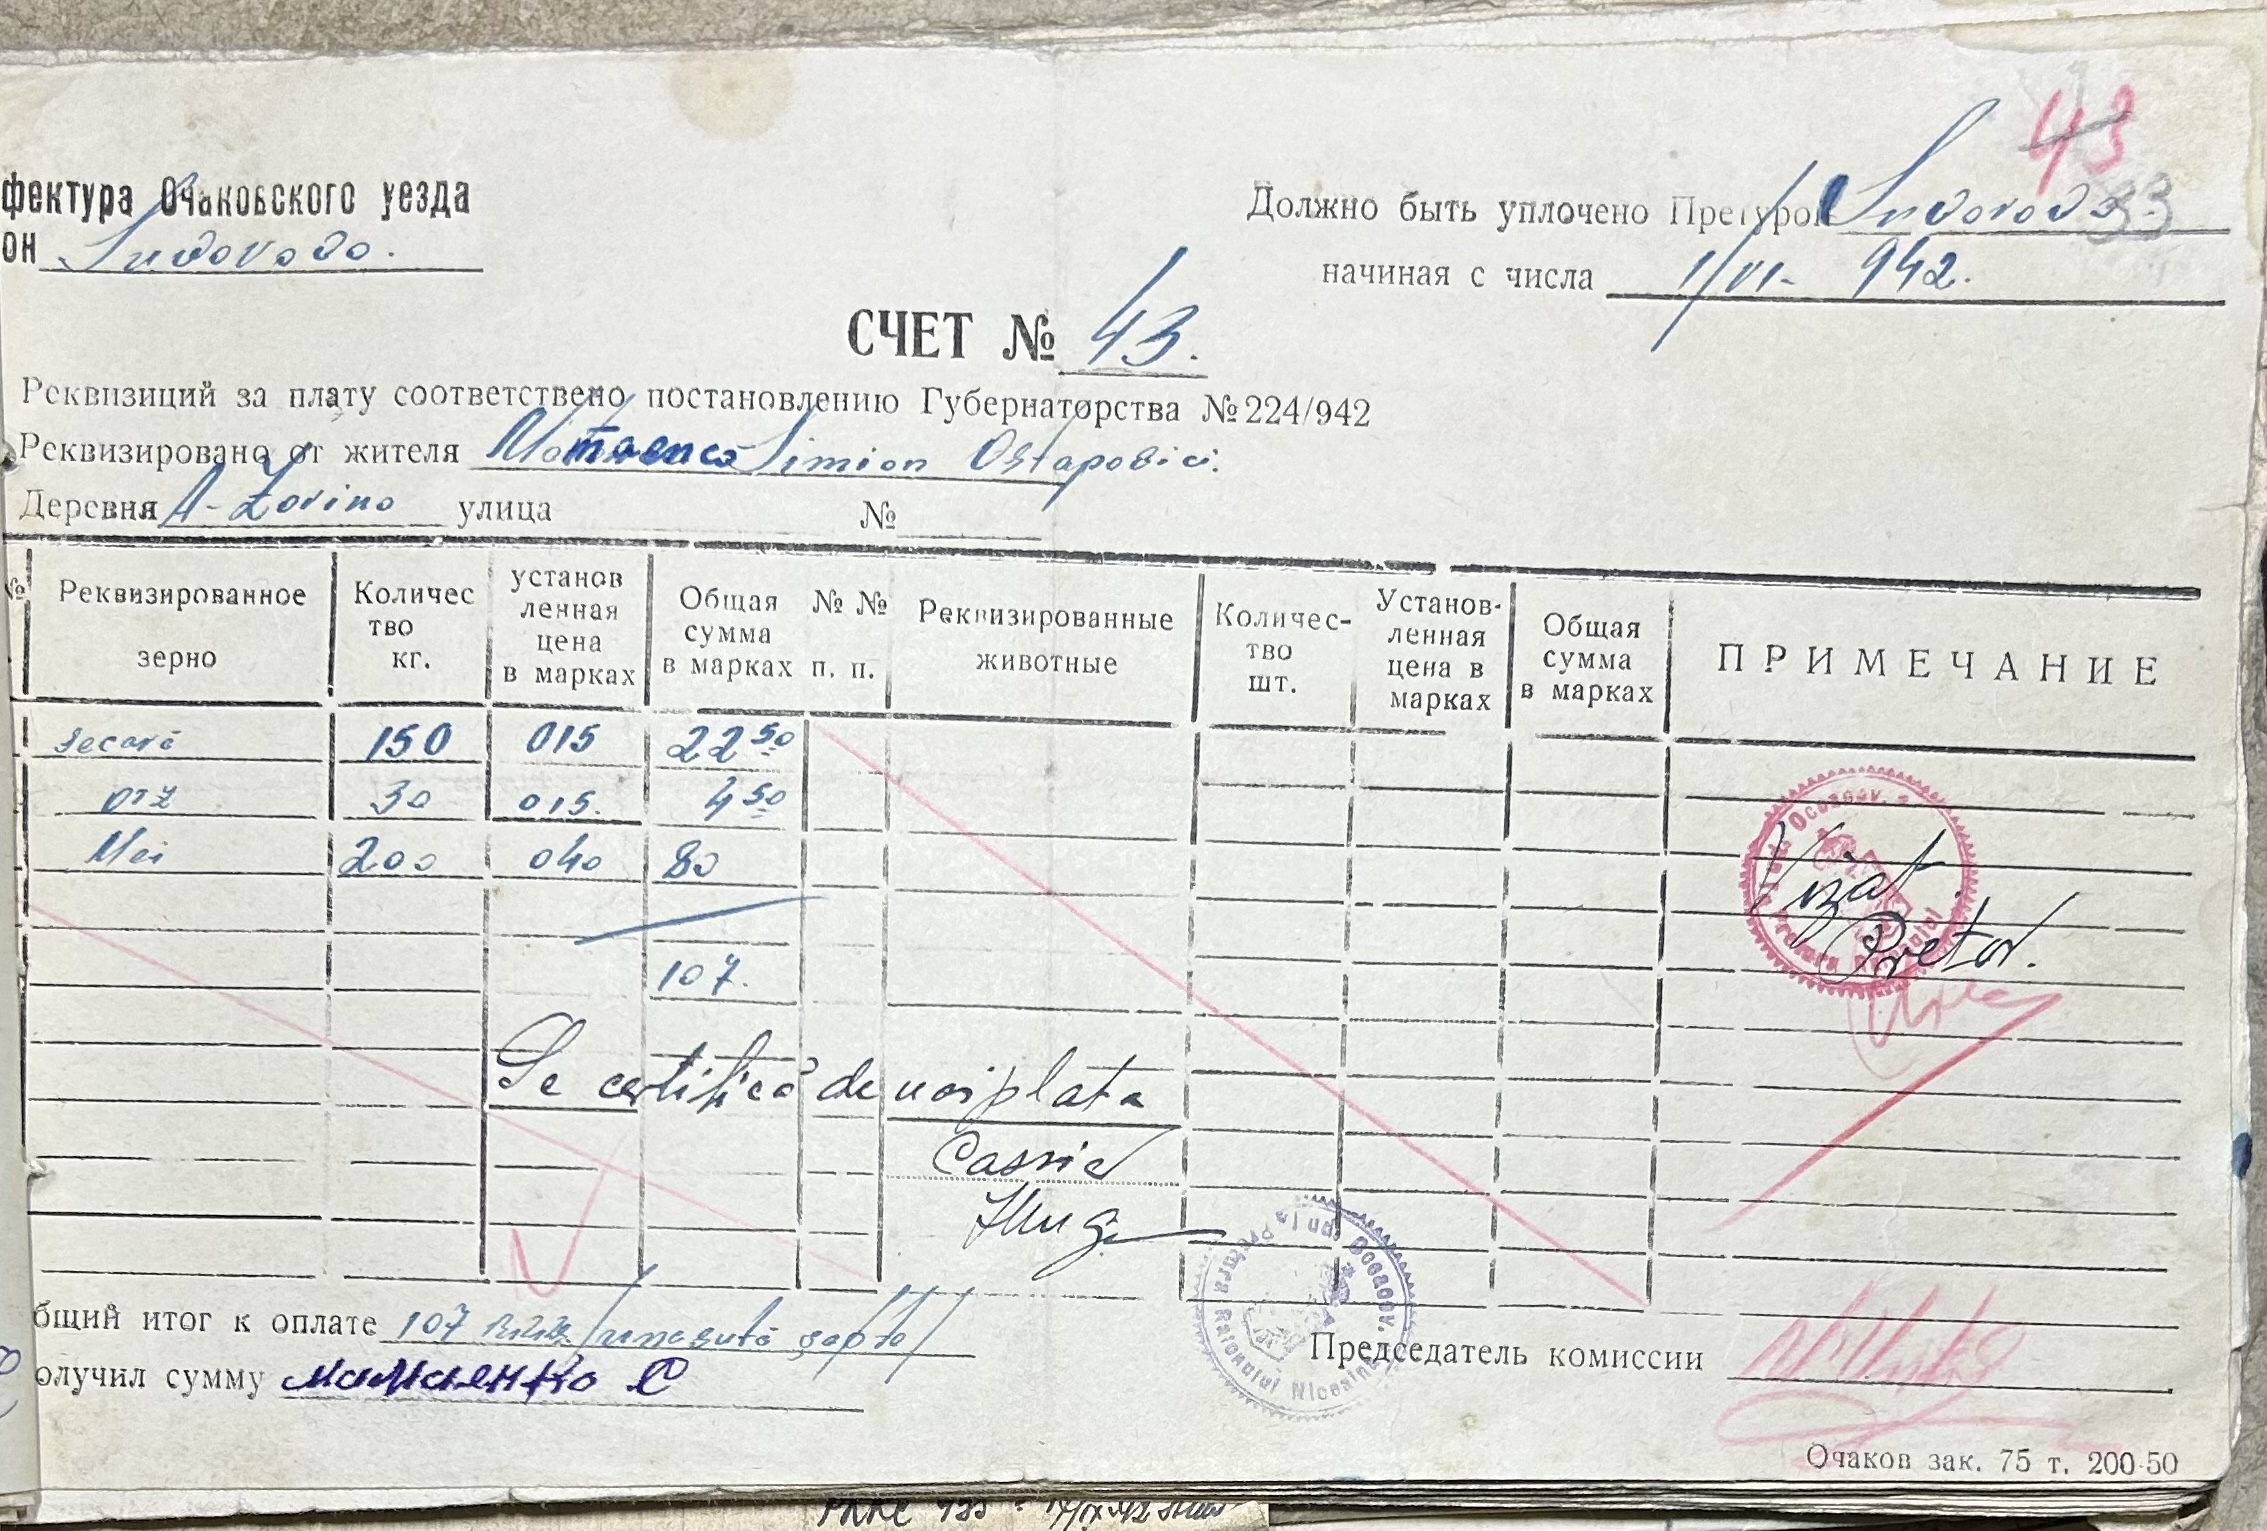 43
33
фектура Очаковского уезда
он Suvorovo.
Должно быть уплочено Претурой Suvorovo
начиная с числа 1/VI- 942.
СЧЕТ № 43.
Реквизиций за плату соответствено постановлению Губернаторства № 224/942
Реквизировано от жителя Simion Ostapovici.
Деревня улица №
№ Реквизированное зерно Количество кг. установленная цена в марках Общая сумма в марках № № п. п. Реквизированные животные Количес-тво шт. Установ-ленная цена в марках Общая сумма в марках ПРИМЕЧАНИЕ
Secară 150 015 22 50
orz 30 015. 4 50
Mei 200 040 80
107.
Vizat
Pretor.
Se certifică de noi plata
Casier
бщий итог к оплате 107 /una sută șapte/
олучил сумму Матаенко С
Председатель комиссии
Очаков зак. 75 т. 200-50